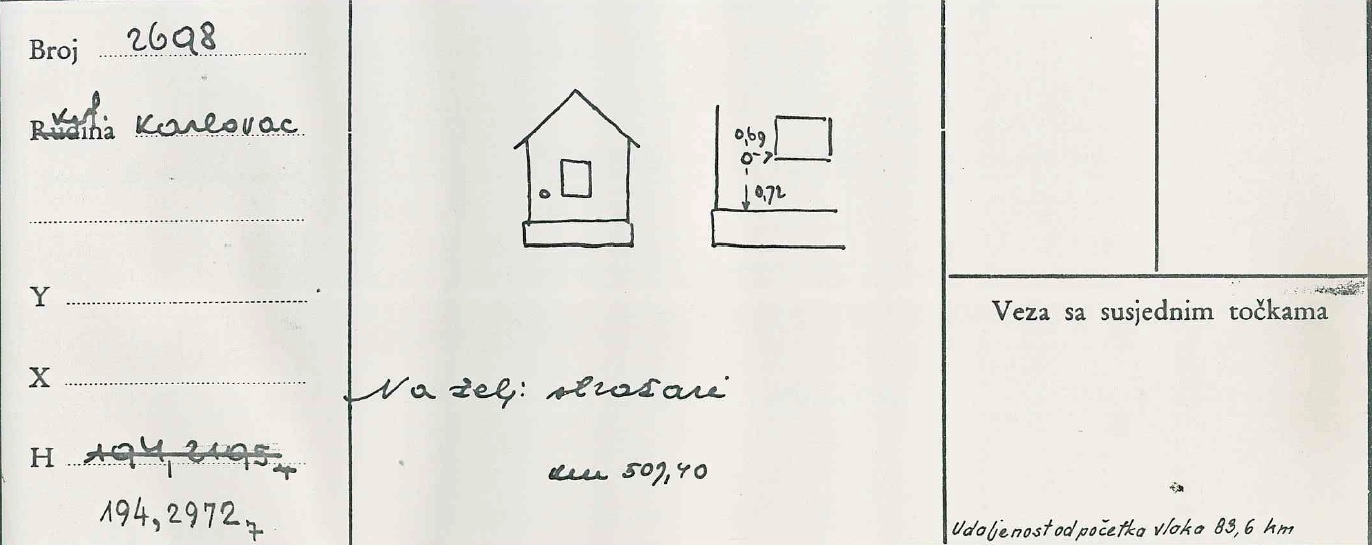 Broj 2698
Rudina Karlovac
Y
X
H 194,2195
194,2972 7
0,69
0,72
Na želj: stražari
km 509,40
Veza sa susjednim točkama
Udaljenost od početka vlaka 83,6 km